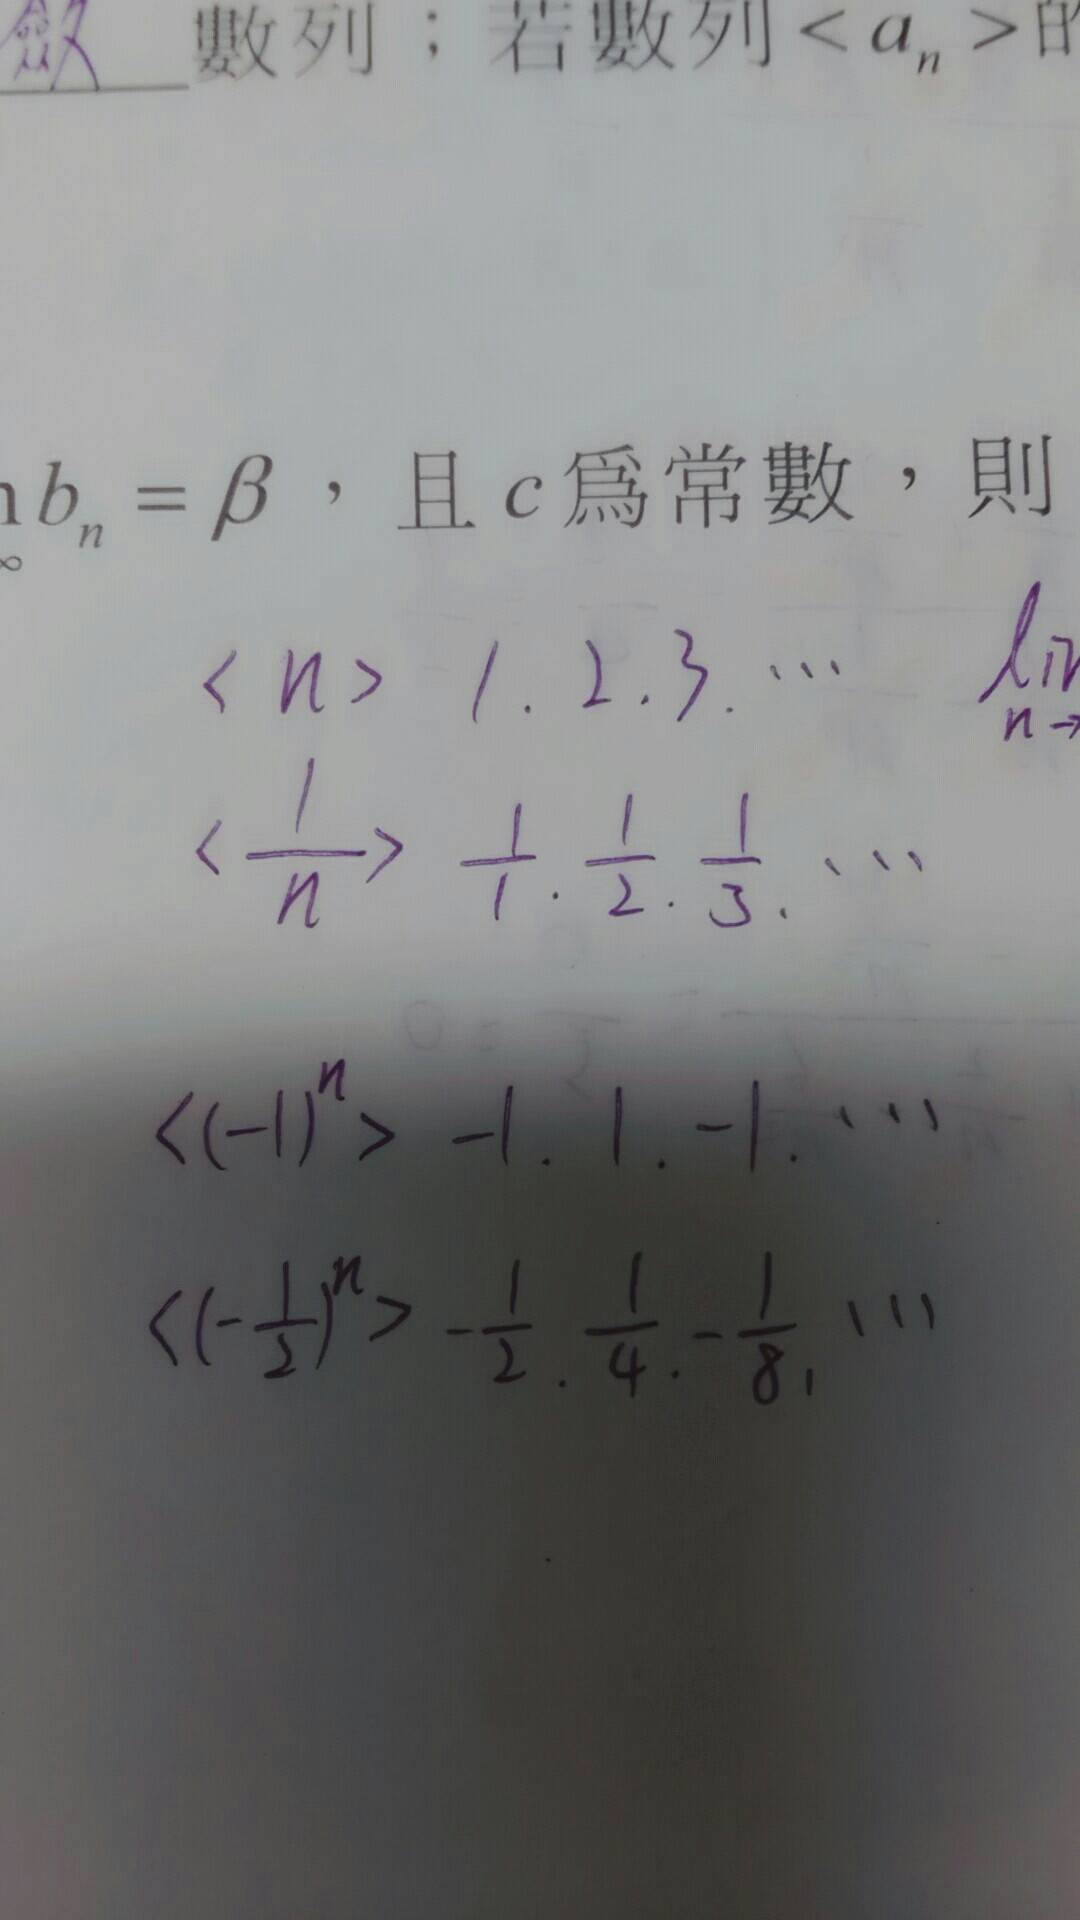 斂 數列；若數列 < aₙ > 的
bₙ = β，且 c 爲常數，則
< n > 1. 2. 3. ... lim
n→
< 1/n > 1/1 . 1/2 . 1/3 . ...
<(-1)ⁿ> -1. 1. -1. ...
<(-1/2)ⁿ> -1/2 . 1/4 . -1/8, ...